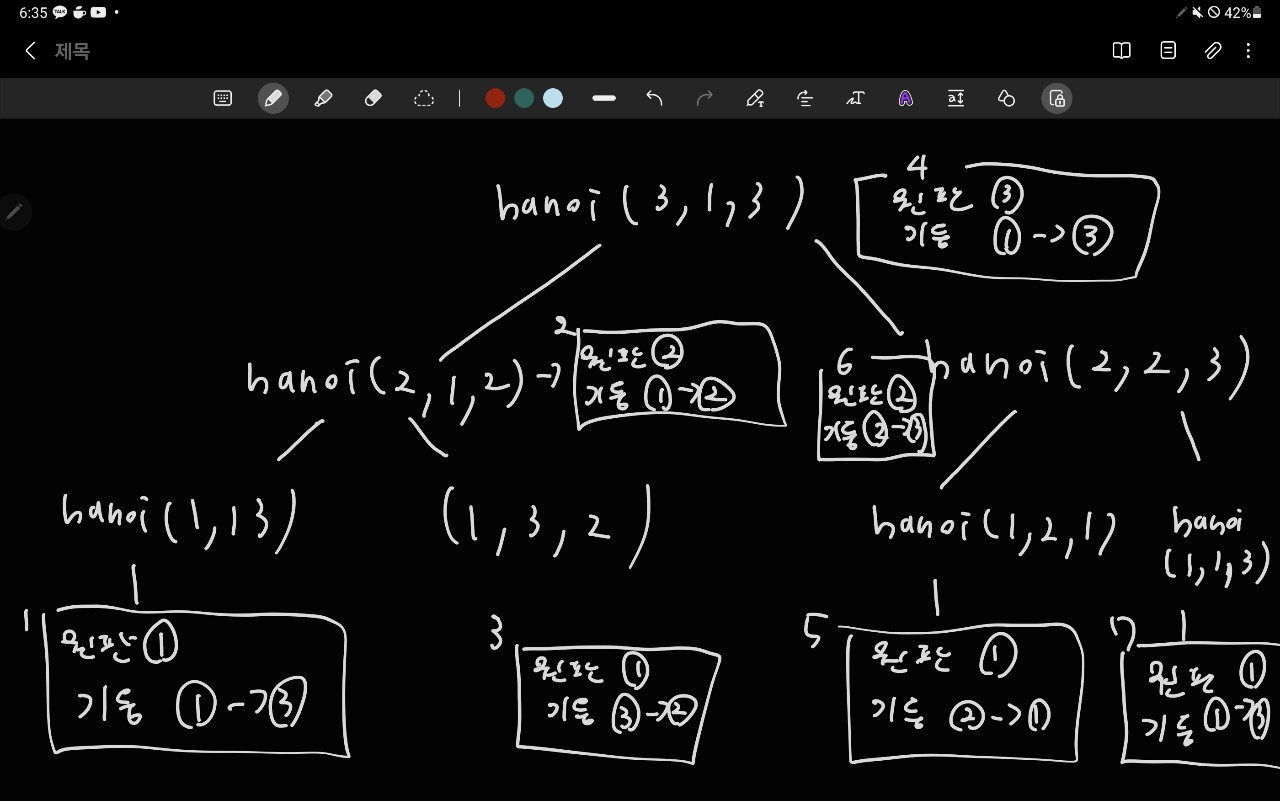 6:35
42%
제목
4
hanoi(3,1,3)
원판 ③
기둥 ①->③
2
원판 ②
hanoi(2,1,2)->
기둥 ①->②
6
hanoi(2,2,3)
원판 ②
기둥 ②->③
hanoi(1,13)
(1,3,2)
hanoi(1,2,1)
hanoi
(1,1,3)
1
원판 ①
기둥 ①->③
3
원판 ①
기둥 ③->②
5
원판 ①
기둥 ②->①
7
원판 ①
기둥 ①->③